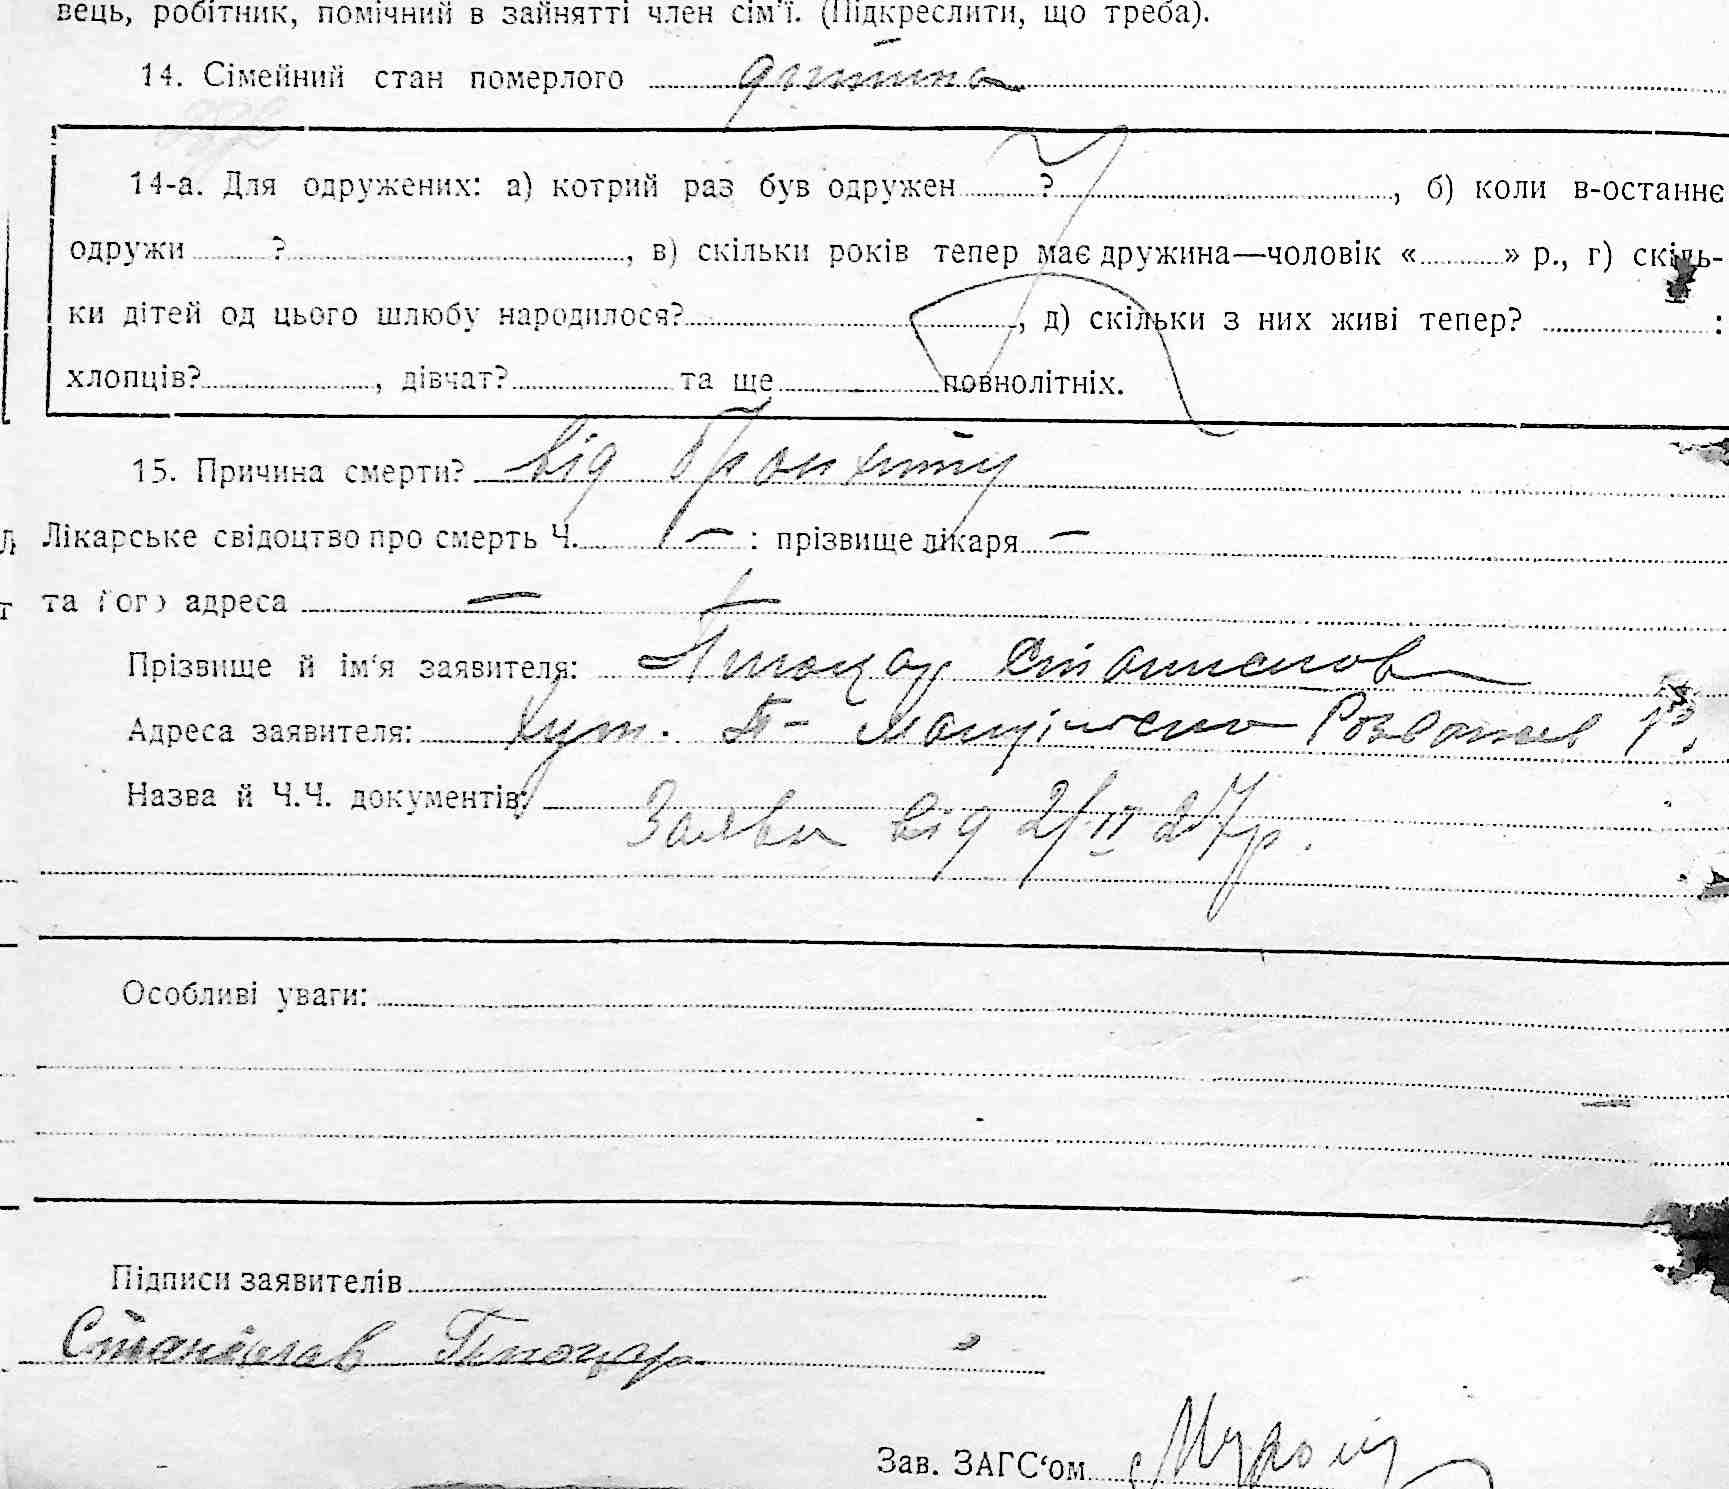 вець, робітник, помічний в зайнятті член сім'ї. (Підкреслити, що треба).
14. Сімейний стан померлого дитина
14-а. Для одружених: а) котрий раз був одружен ? , б) коли в-останнє
одружи ? , в) скільки років тепер має дружина—чоловік « » р., г) скіль-
ки дітей од цього шлюбу народилося? , д) скільки з них живі тепер? :
хлопців? , дівчат? та ще повнолітніх.
15. Причина смерти? від Бронхиту
Лікарське свідоцтво про смерть Ч. — : прізвище лікаря —
та його адреса — —
Прізвище й ім'я заявителя: Станислов
Адреса заявителя: Хут.
Назва й Ч.Ч. документів: Заява від 21/II 27р.
Особливі уваги:
Підписи заявителів
Станіслав
Зав. ЗАГС'ом